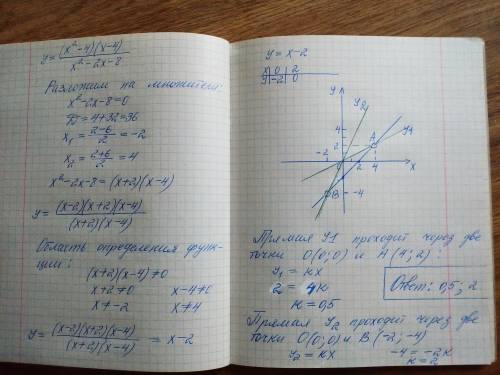 y = (x²-4)(x-4) / x²-2x-8
Разложим на множители:
x²-2x-8=0
D=4+32=36
x₁ = 2-6 / 2 = -2
x₂ = 2+6 / 2 = 4
x²-2x-8=(x+2)(x-4)
y = (x-2)(x+2)(x-4) / (x+2)(x-4)
Область определения функ-
ции:
(x+2)(x-4)≠0
x+2≠0 x-4≠0
x≠-2 x≠4
y = (x-2)(x+2)(x-4) / (x+2)(x-4) = x-2
y = x-2
x 0 2
y -2 0
y y₂
4 A y₁
2
-2 0 2 4 x
B -4
Прямая y1 проходит через две
точки O(0;0) и A(4;2):
y₁ = кx
2 = 4к
к = 0,5
Ответ: 0,5; 2
Прямая y₂ проходит через две
точки O(0;0) и B(-2;-4)
y₂ = кx -4 = -2к
к = 2